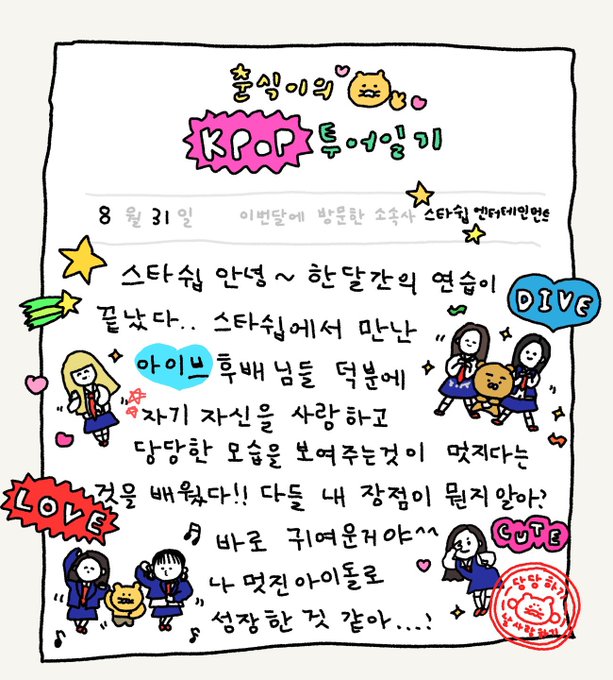 춘식이의
KPOP 투어일기
8월 31일 이번달에 방문한 소속사 스타쉽 엔터테인먼트
스타쉽 안녕~ 한달간의 연습이
끝났다.. 스타쉽에서 만난
DIVE
아이브 후배님들 덕분에
자기 자신을 사랑하고
당당한 모습을 보여주는것이 멋지다는
것을 배웠다!! 다들 내 장점이 뭔지알아?
LOVE
바로 귀여운거야^^
CUTE
나 멋진아이돌로
성장한 것 같아...!
당당하기
날사랑하기